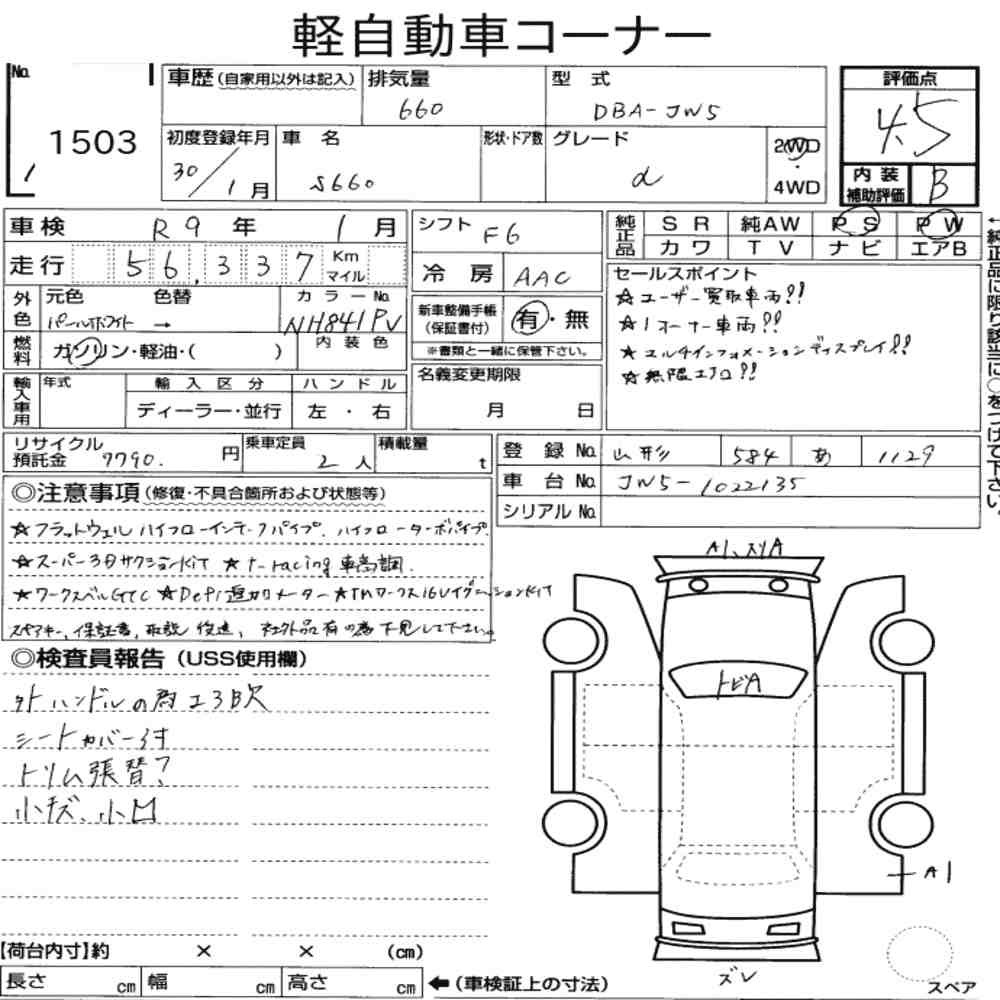 軽自動車コーナー
No. 1503
車歴(自家用以外は記入) 排気量 660 型式 DBA-JW5
初度登録年月 30/1月 車名 S660 形状・ドア数 グレード α 2WD・4WD
評価点 4.5
内装補助評価 B
車検 R9年 1月
走行 56,337 Km マイル
外色 元色 パールホワイト → 色替 カラーNo. NH841PV
燃料 ガソリン・軽油・( ) 内装色
輸入車用 年式 輸入区分 ディーラー・並行 ハンドル 左・右
シフト F6
冷房 AAC
新車整備手帳(保証書付) 有・無
※書類と一緒に保管下さい。
名義変更期限 月 日
純正品 SR 純AW PS PW
カワ TV ナビ エアB
←純正品に限り該当に○をつけて下さい。
セールスポイント
☆ユーザー買取車両!!
☆1オーナー車両!!
★マルチインフォメーションディスプレイ!!
☆無限エアロ!!
リサイクル預託金 7790. 円 乗車定員 2人 積載量 t
登録No. 山形 584 あ 1129
車台No. JW5-1022135
シリアルNo.
◎注意事項(修復・不具合箇所および状態等)
☆フラットウェル ハイフローインテークパイプ. ハイフローターボパイプ.
☆スーパー3日サクションKIT ☆t-racing 車高調.
☆ワークスベルGTC ☆Defi追加メーター ☆TMワークス16VイグニッションKIT
スペアキー, 保証書, 取説 後送, 社外品有の為下見して下さい。
◎検査員報告(USS使用欄)
外ハンドルの為エアB欠
シートカバー付
トリム張替?
小キズ、小凹
A1、スリA
トビA
A1
ズレ
スペア
【荷台内寸】約 × × (cm)
長さ cm 幅 cm 高さ cm ←(車検証上の寸法)